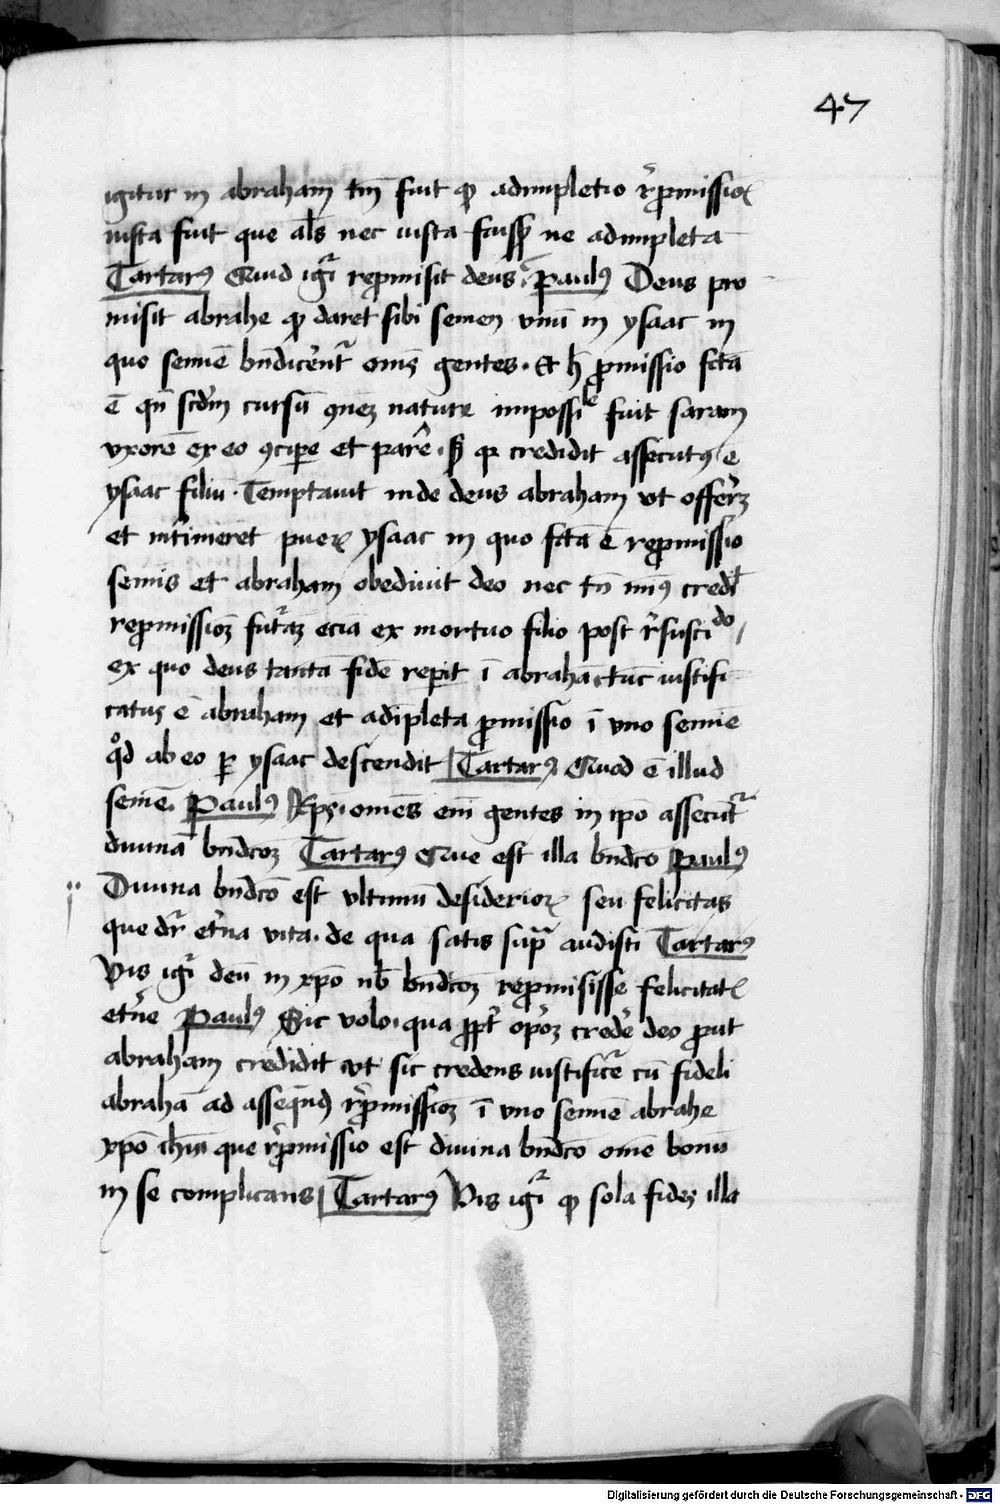 47
igitur in abraham tm̄ fuit ꝙ adimpletio r̄ꝓmissioꝝ
iusta fuit que al̄s nec iusta fuissꝫ ne adimpleta
Tartarꝰ Quid igr̄ reꝓmisit deus. Paulꝰ Deus pro
misit abrahe ꝙ daret sibi semen vnū in ysaac in
quo semīe bn̄dicer̄ntr̄ om̄s gentes. Et h̄ ꝓmissio fctā
ē qn̄ scd̄m cursū ꝯueꝫ nature impossile fuit saram
vxorē ex eo ꝯciꝑe et parē̂. sꝫ qꝛ credidit assecutꝰ ē
ysaac filiū. Temptauit inde deus abraham vt offerr̄ꝫ
et int̄imeret pueꝝ ysaac in quo fctā ē reꝓmissio
semīs et abraham obediuit deo nec tn̄ minꝰ cred̄t
reꝓmissioꝫ futr̄aꝫ eciā ex mortuo filio post r̄suscido
ex quo deus tantā fidē reꝑit ī abrahā tūc iustifi
catus ē abraham et adīpleta ꝓmissio ī vno semīe
qd̊ ab eo ꝑ ysaac descendit Tartarꝰ Quod ē illud
semē. Paulꝰ Xp̄s. omēs em̄ gentes in ip̄o assecūtr̄
diuinā bn̄dcōꝫ Tartarꝰ Que est illa bn̄dcō Paulꝰ
Diuina bn̄dcō est vltimū desiderioꝝ seu felicitas
que dr̄ et̄na vita. de qua satis supͣ audisti Tartarꝰ
Vis igr̄ deū in xp̄o nob̄ bn̄dcōꝫ reꝓmisisse felicitatꝭ
et̄ne Paulꝰ Sic volo. qua ꝓpt̄ oportꝫ credē̂ deo ꝓut
abraham credidit vt sic credens iustificet̄ cū fideli
abrahā ad asseq̄ndꝫ r̄ꝓmissioꝫ ī vno semīē abrahe
xp̄o ih̄u que r̄ꝓmissio est diuina bn̄dcō om̄ē bonū
in se complicans Tartarꝰ Vis igr̄ ꝙ sola fides illa
Digitalisierung gefördert durch die Deutsche Forschungsgemeinschaft - DFG